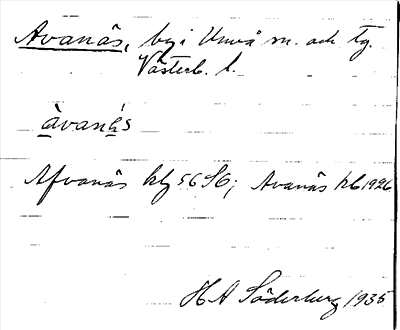 Avanäs, by i Umeå sn. och tg.
Västerb. l.
àvanǟs
Afvanäs hly 56 SO; Avanäs kb 1926
H A Söderberg 1935